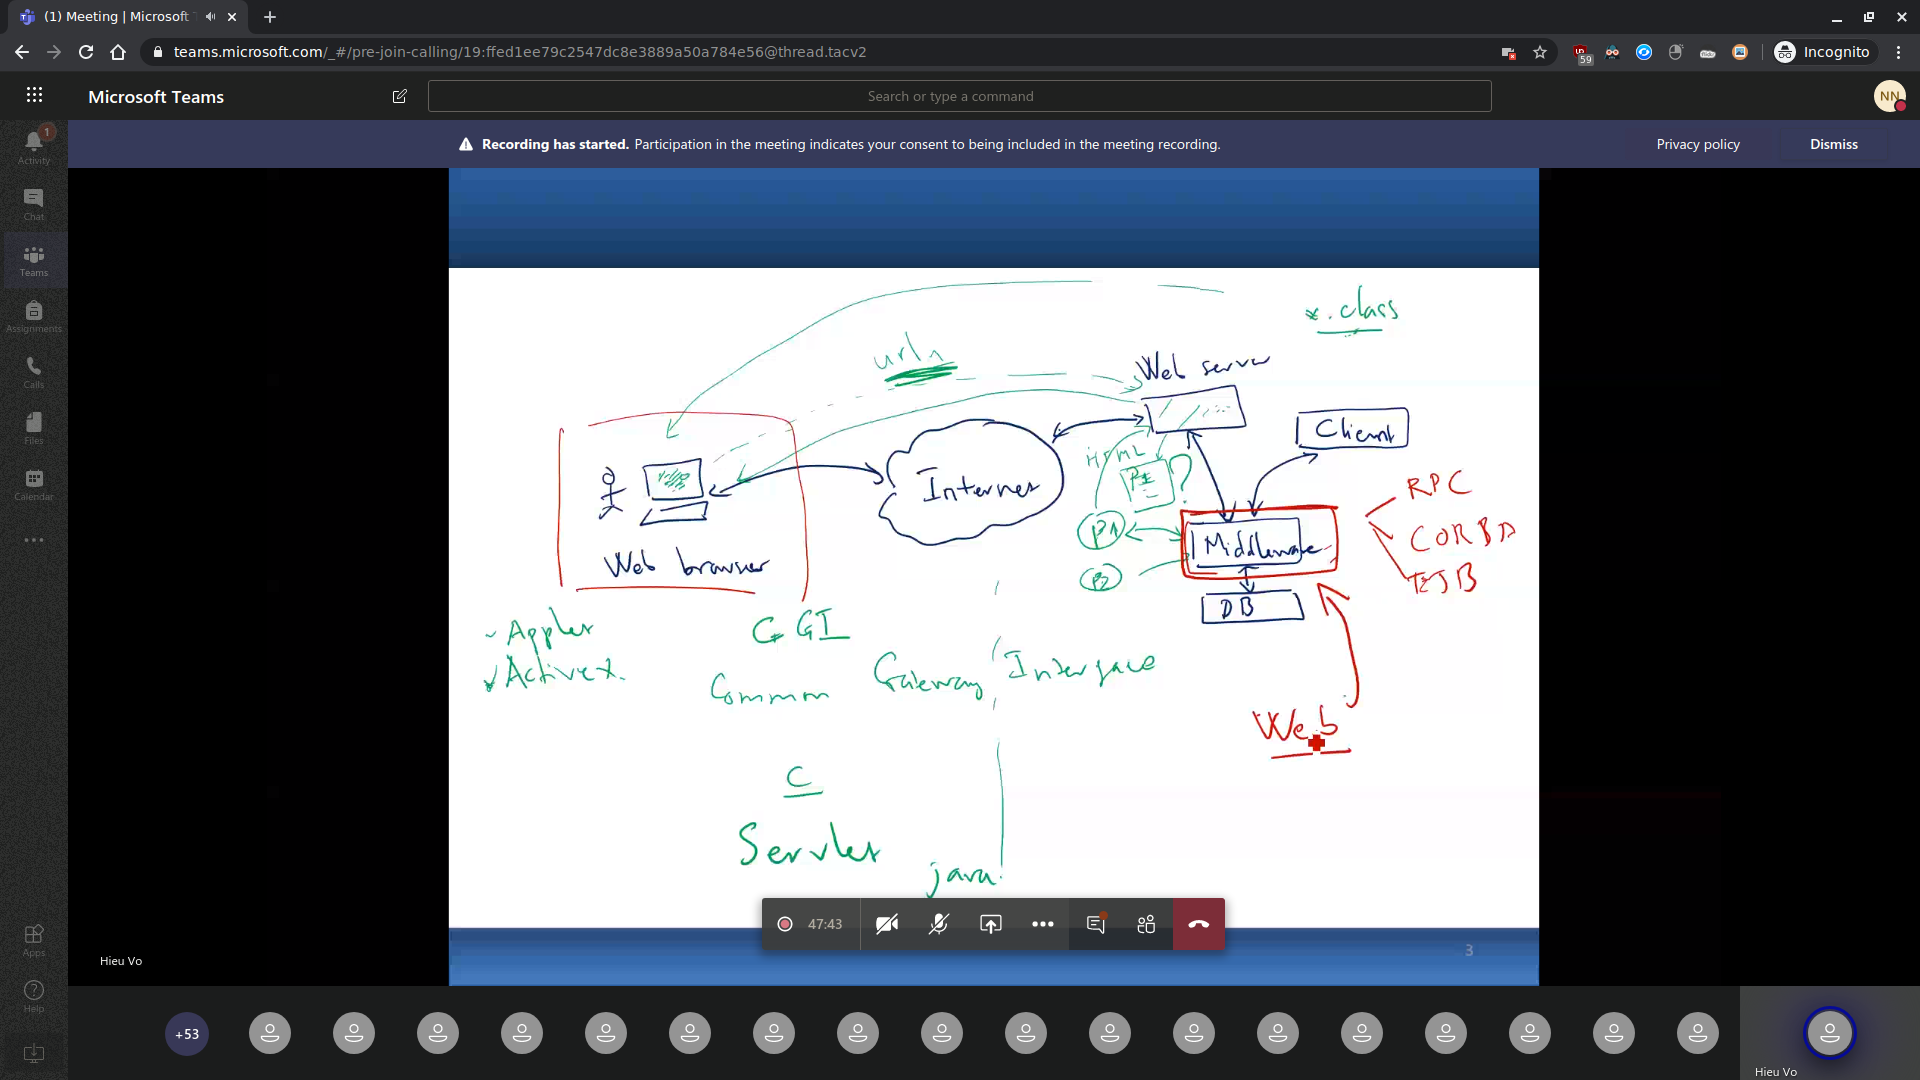 (1) Meeting | Microsoft
teams.microsoft.com/_#/pre-join-calling/19:ffed1ee79c2547dc8e3889a50a784e56@thread.tacv2
59
Incognito
Microsoft Teams
Search or type a command
NN
1
Activity
Chat
Teams
Assignments
Calls
Files
Calendar
Apps
Help
Recording has started. Participation in the meeting indicates your consent to being included in the meeting recording.
Privacy policy
Dismiss
*.class
url
Web server
Client
HTML
?
Internet
RPC
P1
Middleware
CORBA
Web browser
P2
EJB
DB
- Applet
CGI
ActiveX.
Common Gateway Interface
Web
C
Servlet
java
47:43
3
Hieu Vo
+53
Hieu Vo